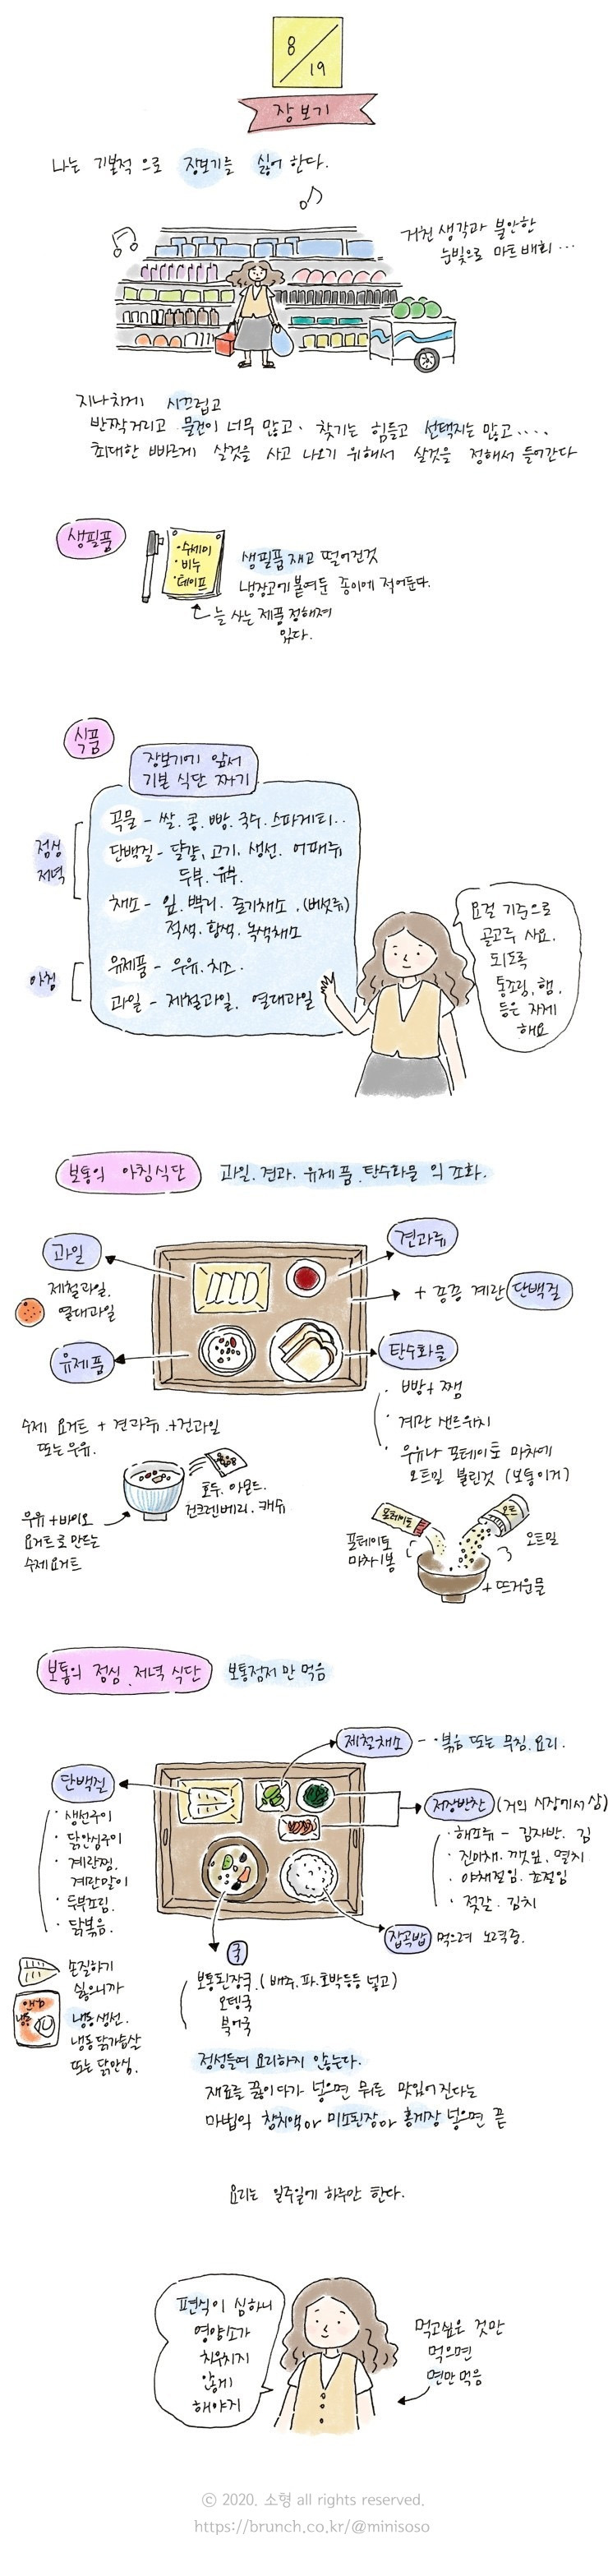 8/19
장보기
나는 기본적으로 장보기를 싫어 한다.
거친 생각과 불안한
눈빛으로 마트 배회...
지나치게 시끄럽고
반짝거리고 물건이 너무 많고, 찾기는 힘들고 선택지는 많고....
최대한 빠르게 살것을 사고 나오기 위해서 살것을 정해서 들어간다
생필품
·수세미
·비누
·테이프
생필품 재고 떨어진것
냉장고에 붙여둔 종이에 적어둔다.
늘 사는 제품 정해져
있다.
식품
장보기에 앞서
기본 식단 짜기
점심
저녁
곡물 - 쌀. 콩. 빵. 국수. 스파게티..
단백질 - 달걀, 고기, 생선. 어패류
두부. 유부.
채소 - 잎. 뿌리. 줄기채소. (버섯류)
적색. 황색. 녹색채소
아침
유제품 - 우유. 치즈.
과일 - 제철과일. 열대과일
요걸 기준으로
골고루 사요.
되도록
통조림, 햄,
등은 자제
해요
보통의 아침식단
과일. 견과. 유제품. 탄수화물 의 조화.
과일
제철과일.
열대과일
견과류
+ 종종 계란 단백질
유제품
탄수화물
· 빵 + 쨈
· 계란 샌드위치
· 우유나 포테이토 마차에
오트밀 불린것 (보통이거)
수제 요거트 + 견과류 + 건과일
또는 우유.
호두. 아몬드.
건크렌베리. 캐슈
우유 + 바이오
요거트로 만드는
수제요거트
포테이토
오트
포테이토
마차1봉
오트밀
+ 뜨거운물
보통의 점심. 저녁 식단
보통점저 만 먹음
제철채소 - ·볶음 또는 무침. 요리.
단백질
· 생선구이
· 닭안심구이
· 계란찜.
계란말이
· 두부조림.
· 닭볶음.
저장반찬 (거의 시장에서 삼)
· 해조류 - 김자반. 김
· 진미채. 깻잎. 멸치
· 야채절임. 초절임
· 젓갈. 김치
잡곡밥 먹으려 노력중.
국
보통된장국. (배추. 파. 호박등등 넣고)
오뎅국
북어국
손질하기
싫으니까
냉동생선.
냉동닭가슴살
또는 닭안심.
냉동
정성들여 요리하지 않는다.
재료를 끓이다가 넣으면 뭐든 맛있어진다는
마법의 참치액이나 미소된장이나 홍게장 넣으면 끝
요리는 일주일에 하루만 한다.
편식이 심하니
영양소가
치우치지
않게
해야지
먹고싶은 것만
먹으면
면만 먹음
ⓒ 2020. 소형 all rights reserved.
https://brunch.co.kr/@minisoso